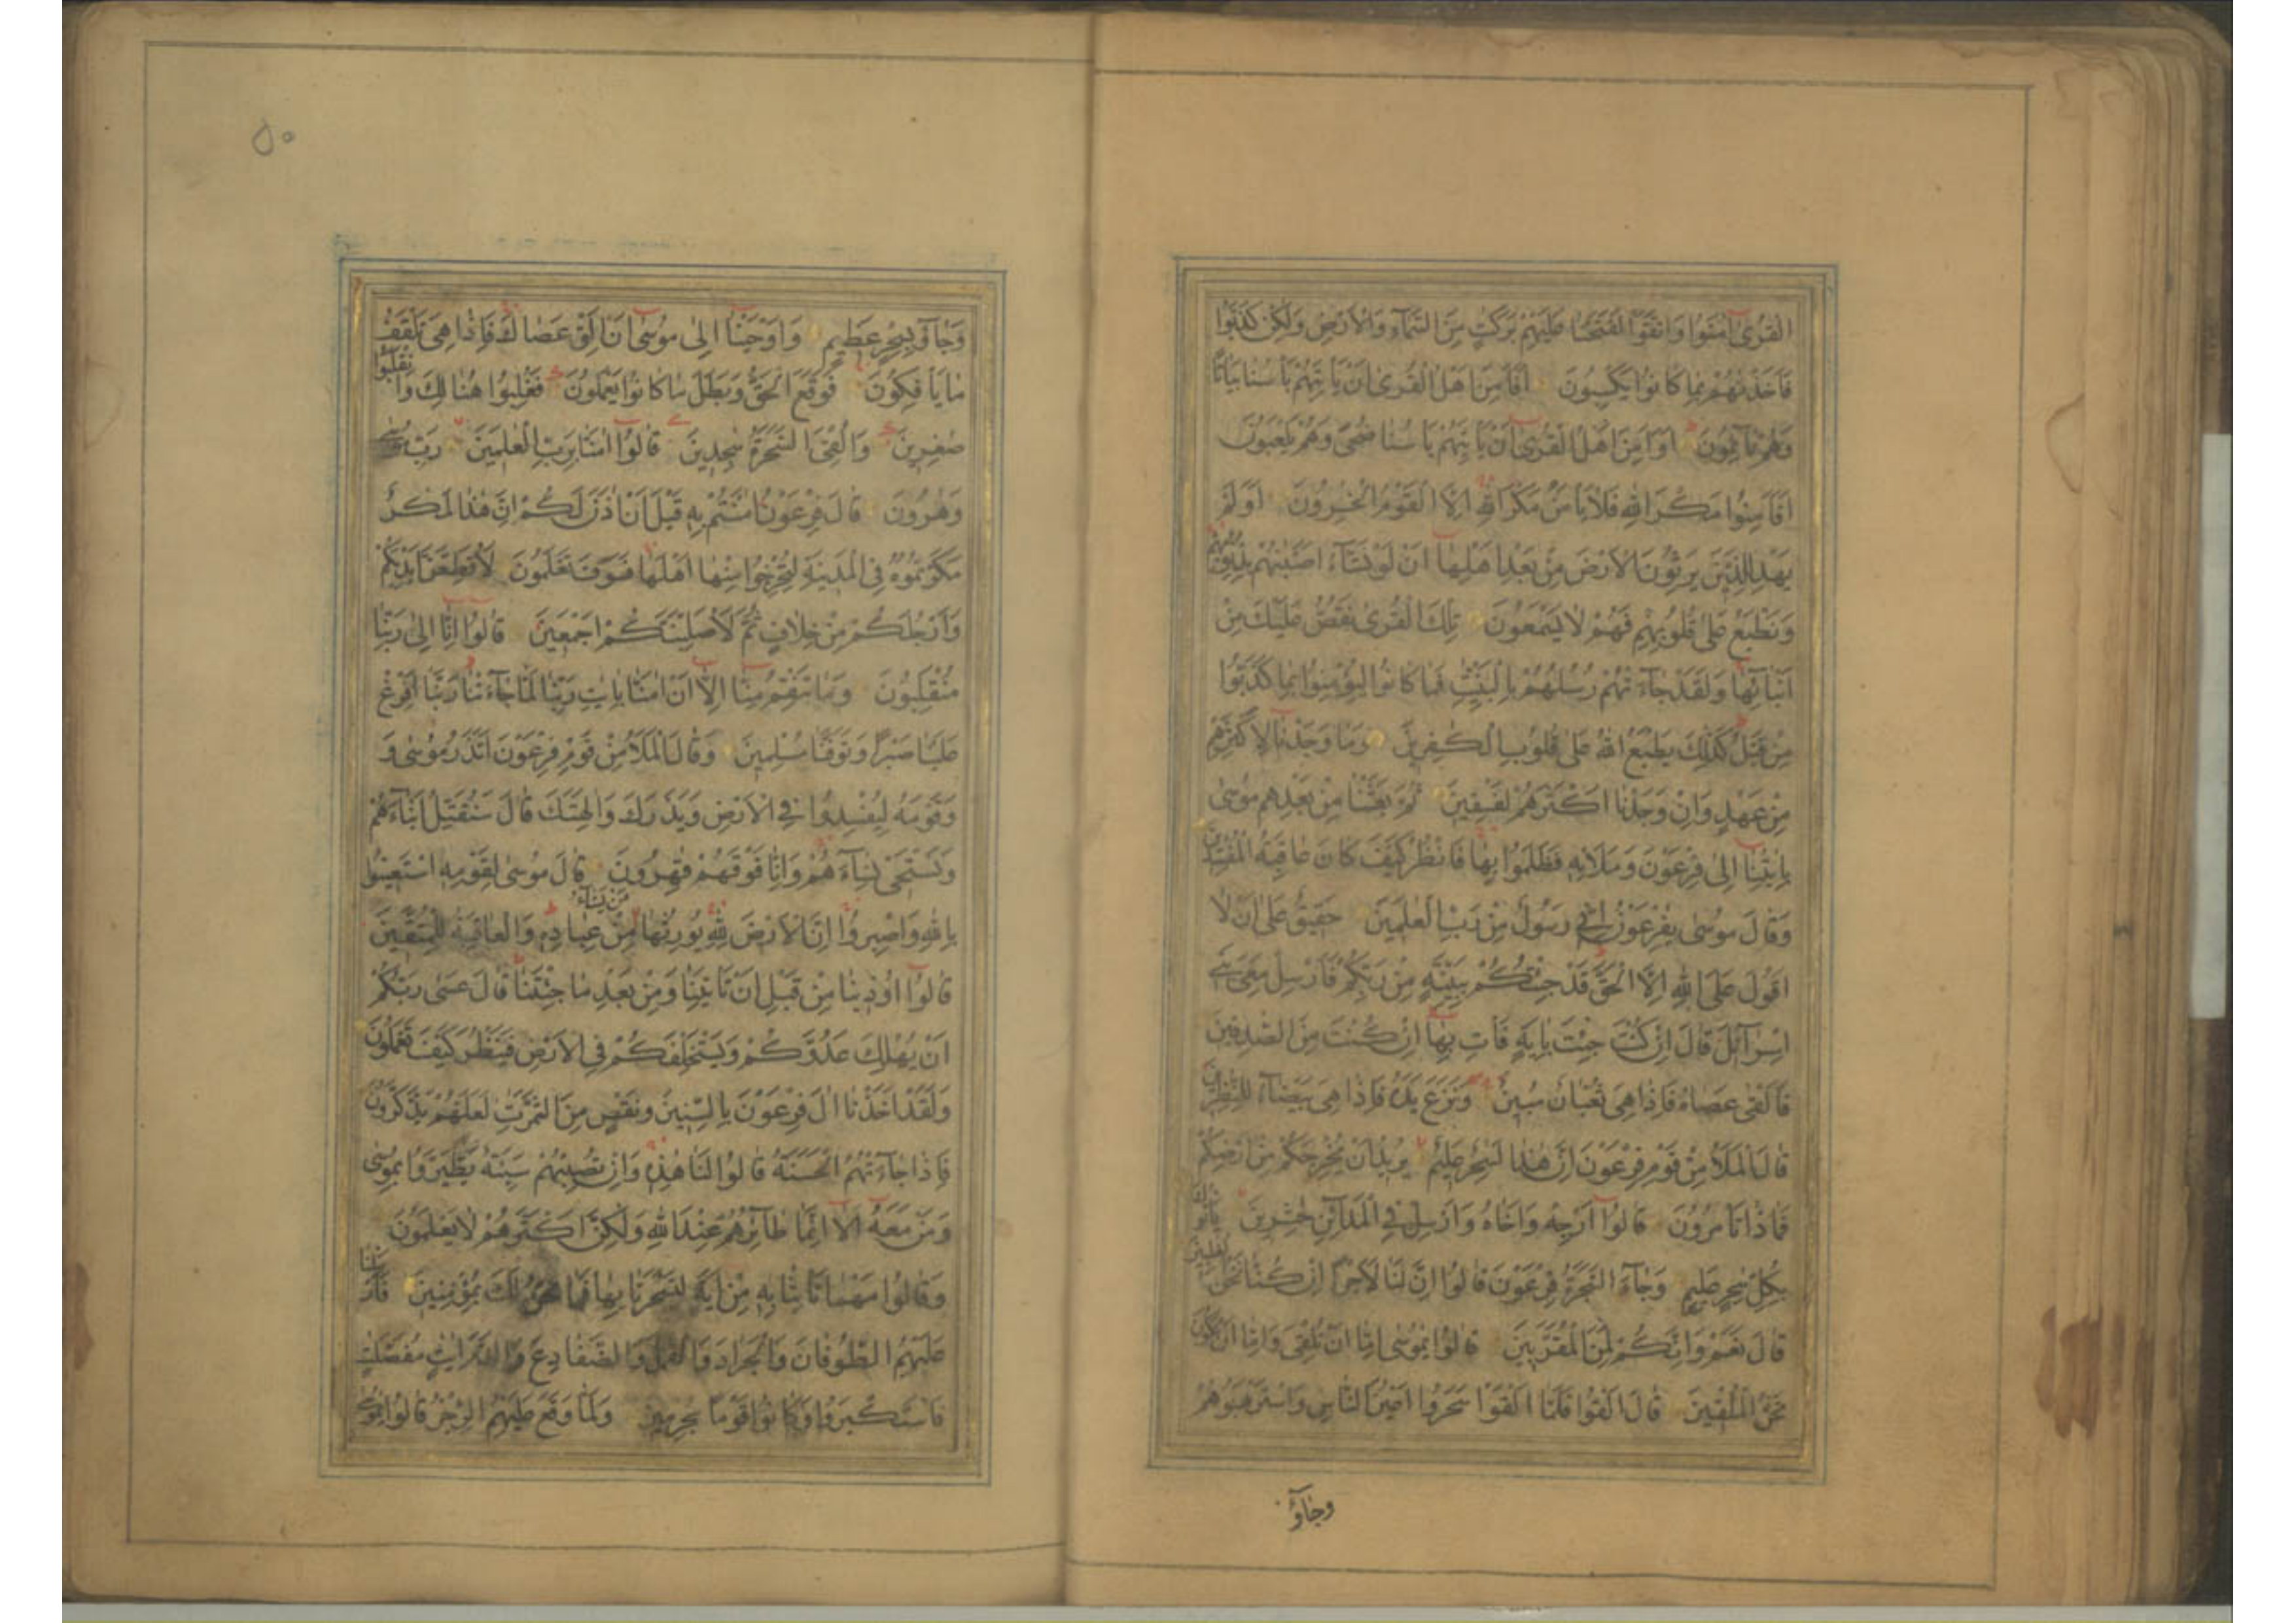 القُرىٰ اٰمَنُوا وَاتَّقَوْا لَفَتَحْنا عَلَيْهِمْ بَرَكٰتٍ مِنَ السَّمآءِ وَالاَرْضِ وَلٰكِنْ كَذَّبُوا
فَاَخَذْنٰهُمْ بِما كانُوا يَكْسِبُونَ اَفَاَمِنَ اَهْلُ الْقُرىٰ اَنْ يَأْتِيَهُمْ بَأْسُنا بَياتًا
وَهُمْ نآئِمُونَ اَوَاَمِنَ اَهْلُ الْقُرىٰ اَنْ يَأْتِيَهُمْ بَأْسُنا ضُحًى وَهُمْ يَلْعَبُونَ
اَفَاَمِنُوا مَكْرَ اللهِ فَلا يَأْمَنُ مَكْرَ اللهِ اِلَّا الْقَوْمُ الْخٰسِرُونَ اَوَلَمْ
يَهْدِ لِلَّذِينَ يَرِثُونَ الاَرْضَ مِنْ بَعْدِ اَهْلِها اَنْ لَوْ نَشآءُ اَصَبْنٰهُمْ بِذُنُوبِهِمْ
وَنَطْبَعُ عَلىٰ قُلُوبِهِمْ فَهُمْ لا يَسْمَعُونَ تِلْكَ الْقُرىٰ نَقُصُّ عَلَيْكَ مِنْ
اَنْبآئِها وَلَقَدْ جآءَتْهُمْ رُسُلُهُمْ بِالْبَيِّنٰتِ فَما كانُوا لِيُؤْمِنُوا بِما كَذَّبُوا
مِنْ قَبْلُ كَذٰلِكَ يَطْبَعُ اللهُ عَلىٰ قُلُوبِ الْكٰفِرِينَ وَما وَجَدْنا لِاَكْثَرِهِمْ
مِنْ عَهْدٍ وَاِنْ وَجَدْنا اَكْثَرَهُمْ لَفٰسِقِينَ ثُمَّ بَعَثْنا مِنْ بَعْدِهِمْ مُوسىٰ
بِاٰيٰتِنا اِلىٰ فِرْعَوْنَ وَمَلَائِهِ فَظَلَمُوا بِها فَانْظُرْ كَيْفَ كانَ عاقِبَةُ الْمُفْسِدِينَ
وَقالَ مُوسىٰ يٰفِرْعَوْنُ اِنِّي رَسُولٌ مِنْ رَبِّ الْعٰلَمِينَ حَقِيقٌ عَلىٰ اَنْ لا
اَقُولَ عَلَى اللهِ اِلَّا الْحَقَّ قَدْ جِئْتُكُمْ بِبَيِّنَةٍ مِنْ رَبِّكُمْ فَاَرْسِلْ مَعِيَ بَنِي
اِسْرآئِلَ قالَ اِنْ كُنْتَ جِئْتَ بِاٰيَةٍ فَأْتِ بِها اِنْ كُنْتَ مِنَ الصّٰدِقِينَ
فَاَلْقىٰ عَصاهُ فَاِذا هِيَ ثُعْبانٌ مُبِينٌ وَنَزَعَ يَدَهُ فَاِذا هِيَ بَيْضآءُ لِلنّٰظِرِينَ
قالَ الْمَلَأُ مِنْ قَوْمِ فِرْعَوْنَ اِنَّ هٰذا لَسٰحِرٌ عَلِيمٌ يُرِيدُ اَنْ يُخْرِجَكُمْ مِنْ اَرْضِكُمْ
فَماذا تَأْمُرُونَ قالُوا اَرْجِهْ وَاَخاهُ وَاَرْسِلْ فِي الْمَدآئِنِ حٰشِرِينَ يَأْتُوكَ
بِكُلِّ سٰحِرٍ عَلِيمٍ وَجآءَ السَّحَرَةُ فِرْعَوْنَ قالُوا اِنَّ لَنا لَاَجْرًا اِنْ كُنّا نَحْنُ الْغٰلِبِينَ
قالَ نَعَمْ وَاِنَّكُمْ لَمِنَ الْمُقَرَّبِينَ قالُوا يٰمُوسىٰ اِمّا اَنْ تُلْقِيَ وَاِمّا اَنْ نَكُونَ
نَحْنُ الْمُلْقِينَ قالَ اَلْقُوا فَلَمّا اَلْقَوْا سَحَرُوا اَعْيُنَ النّاسِ وَاسْتَرْهَبُوهُمْ
وجآؤ
٥٠
وَجآؤُ بِسِحْرٍ عَظِيمٍ وَاَوْحَيْنا اِلىٰ مُوسىٰ اَنْ اَلْقِ عَصاكَ فَاِذا هِيَ تَلْقَفُ
ما يَأْفِكُونَ فَوَقَعَ الْحَقُّ وَبَطَلَ ما كانُوا يَعْمَلُونَ فَغُلِبُوا هُنالِكَ وَانْقَلَبُوا
صٰغِرِينَ وَاُلْقِيَ السَّحَرَةُ سٰجِدِينَ قالُوا اٰمَنّا بِرَبِّ الْعٰلَمِينَ رَبِّ مُوسىٰ
وَهٰرُونَ قالَ فِرْعَوْنُ اٰمَنْتُمْ بِهِ قَبْلَ اَنْ اٰذَنَ لَكُمْ اِنَّ هٰذا لَمَكْرٌ
مَكَرْتُمُوهُ فِي الْمَدِينَةِ لِتُخْرِجُوا مِنْها اَهْلَها فَسَوْفَ تَعْلَمُونَ لَاُقَطِّعَنَّ اَيْدِيَكُمْ
وَاَرْجُلَكُمْ مِنْ خِلافٍ ثُمَّ لَاُصَلِّبَنَّكُمْ اَجْمَعِينَ قالُوا اِنّا اِلىٰ رَبِّنا
مُنْقَلِبُونَ وَما تَنْقِمُ مِنّا اِلّا اَنْ اٰمَنّا بِاٰيٰتِ رَبِّنا لَمّا جآءَتْنا رَبَّنا اَفْرِغْ
عَلَيْنا صَبْرًا وَتَوَفَّنا مُسْلِمِينَ وَقالَ الْمَلَأُ مِنْ قَوْمِ فِرْعَوْنَ اَتَذَرُ مُوسىٰ وَ
وَقَوْمَهُ لِيُفْسِدُوا فِي الاَرْضِ وَيَذَرَكَ وَاٰلِهَتَكَ قالَ سَنُقَتِّلُ اَبْنآءَهُمْ
وَنَسْتَحْيِي نِسآءَهُمْ وَاِنّا فَوْقَهُمْ قٰهِرُونَ قالَ مُوسىٰ لِقَوْمِهِ اسْتَعِينُوا
بِاللهِ وَاصْبِرُوا اِنَّ الاَرْضَ لِلّٰهِ يُورِثُها مَنْ يَشآءُ مِنْ عِبادِهِ وَالْعاقِبَةُ لِلْمُتَّقِينَ
قالُوا اُوذِينا مِنْ قَبْلِ اَنْ تَأْتِيَنا وَمِنْ بَعْدِ ما جِئْتَنا قالَ عَسىٰ رَبُّكُمْ
اَنْ يُهْلِكَ عَدُوَّكُمْ وَيَسْتَخْلِفَكُمْ فِي الاَرْضِ فَيَنْظُرَ كَيْفَ تَعْمَلُونَ
وَلَقَدْ اَخَذْنا اٰلَ فِرْعَوْنَ بِالسِّنِينَ وَنَقْصٍ مِنَ الثَّمَرٰتِ لَعَلَّهُمْ يَذَّكَّرُونَ
فَاِذا جآءَتْهُمُ الْحَسَنَةُ قالُوا لَنا هٰذِهِ وَاِنْ تُصِبْهُمْ سَيِّئَةٌ يَطَّيَّرُوا بِمُوسىٰ
وَمَنْ مَعَهُ اَلا اِنَّما طآئِرُهُمْ عِنْدَ اللهِ وَلٰكِنَّ اَكْثَرَهُمْ لا يَعْلَمُونَ
وَقالُوا مَهْما تَأْتِنا بِهِ مِنْ اٰيَةٍ لِتَسْحَرَنا بِها فَما نَحْنُ لَكَ بِمُؤْمِنِينَ فَاَرْسَلْنا
عَلَيْهِمُ الطُّوفانَ وَالْجَرادَ وَالْقُمَّلَ وَالضَّفادِعَ وَالدَّمَ اٰياتٍ مُفَصَّلٰتٍ
فَاسْتَكْبَرُوا وَكانُوا قَوْمًا مُجْرِمِينَ وَلَمّا وَقَعَ عَلَيْهِمُ الرِّجْزُ قالُوا يٰمُوسَى